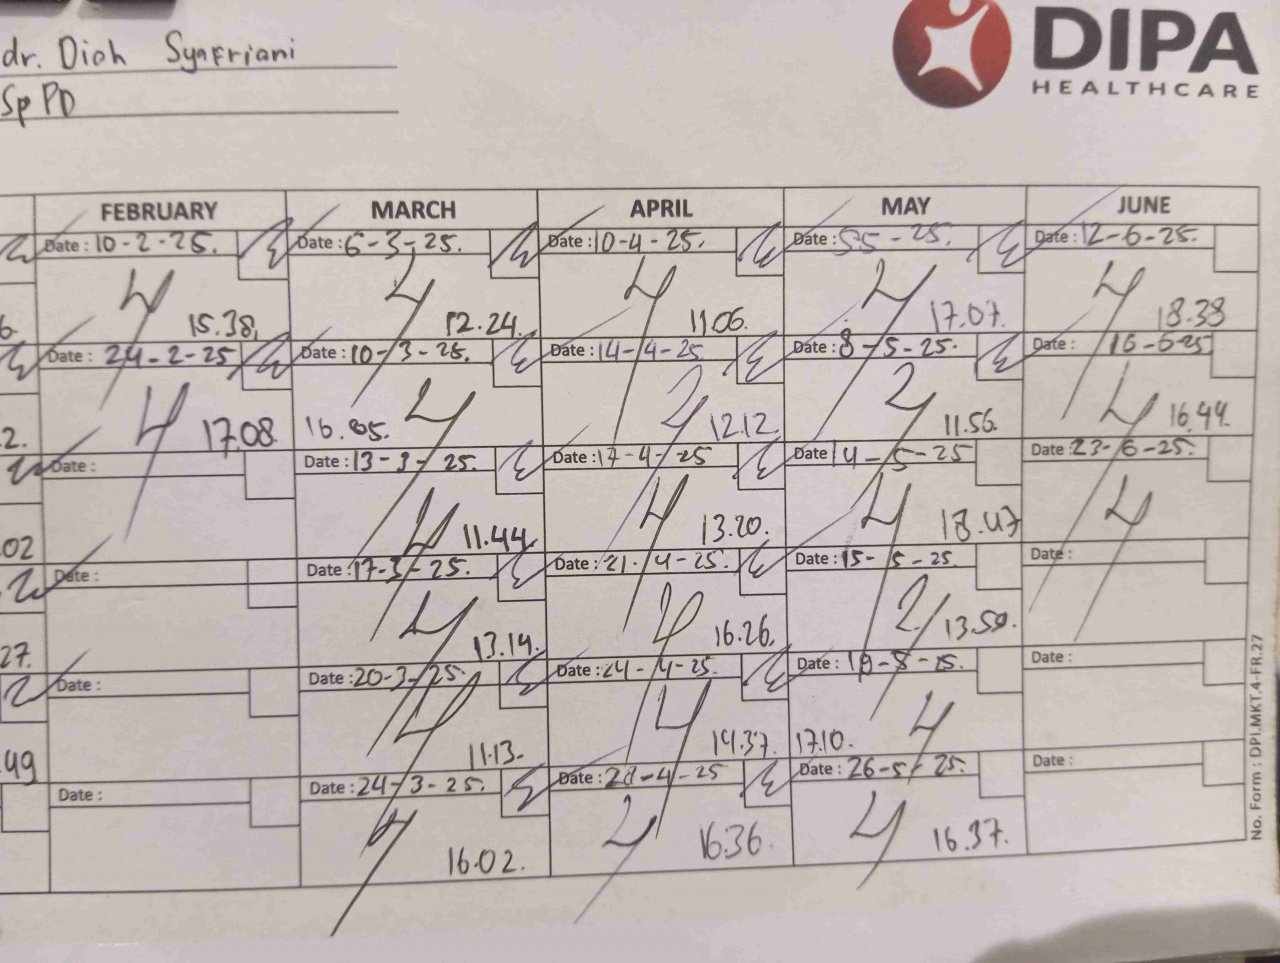 dr. Diah Syafriani
Sp PD
DIPA
HEALTHCARE
FEBRUARY MARCH APRIL MAY JUNE
Date : 10-2-25. Date : 6-3-25. Date : 10-4-25. Date : 5-5-25. Date : 12-6-25.
6. 15.38. 12.24. 11.06. 17.07. 18.38
Date : 24-2-25 Date : 10-3-25. Date : 14-4-25 Date : 8-5-25. Date : 16-6-25
2. 17.08 16.05. 12.12. 11.56. 16.44.
Date : Date : 13-3-25. Date : 17-4-25 Date 14-5-25 Date : 23-6-25.
02 11.44. 13.20. 18.47
Date : Date : 17-3-25. Date : 21-4-25. Date : 15-5-25. Date :
27. 13.14. 16.26. 13.50.
Date : Date : 20-3-25. Date : 24-4-25. Date : 19-5-25. Date :
.49 11.13. 14.37. 17.10.
Date : Date : 24-3-25. Date : 28-4-25 Date : 26-5-25. Date :
16.02. 16.36. 16.37.
No. Form : DPI.MKT.4-FR.27